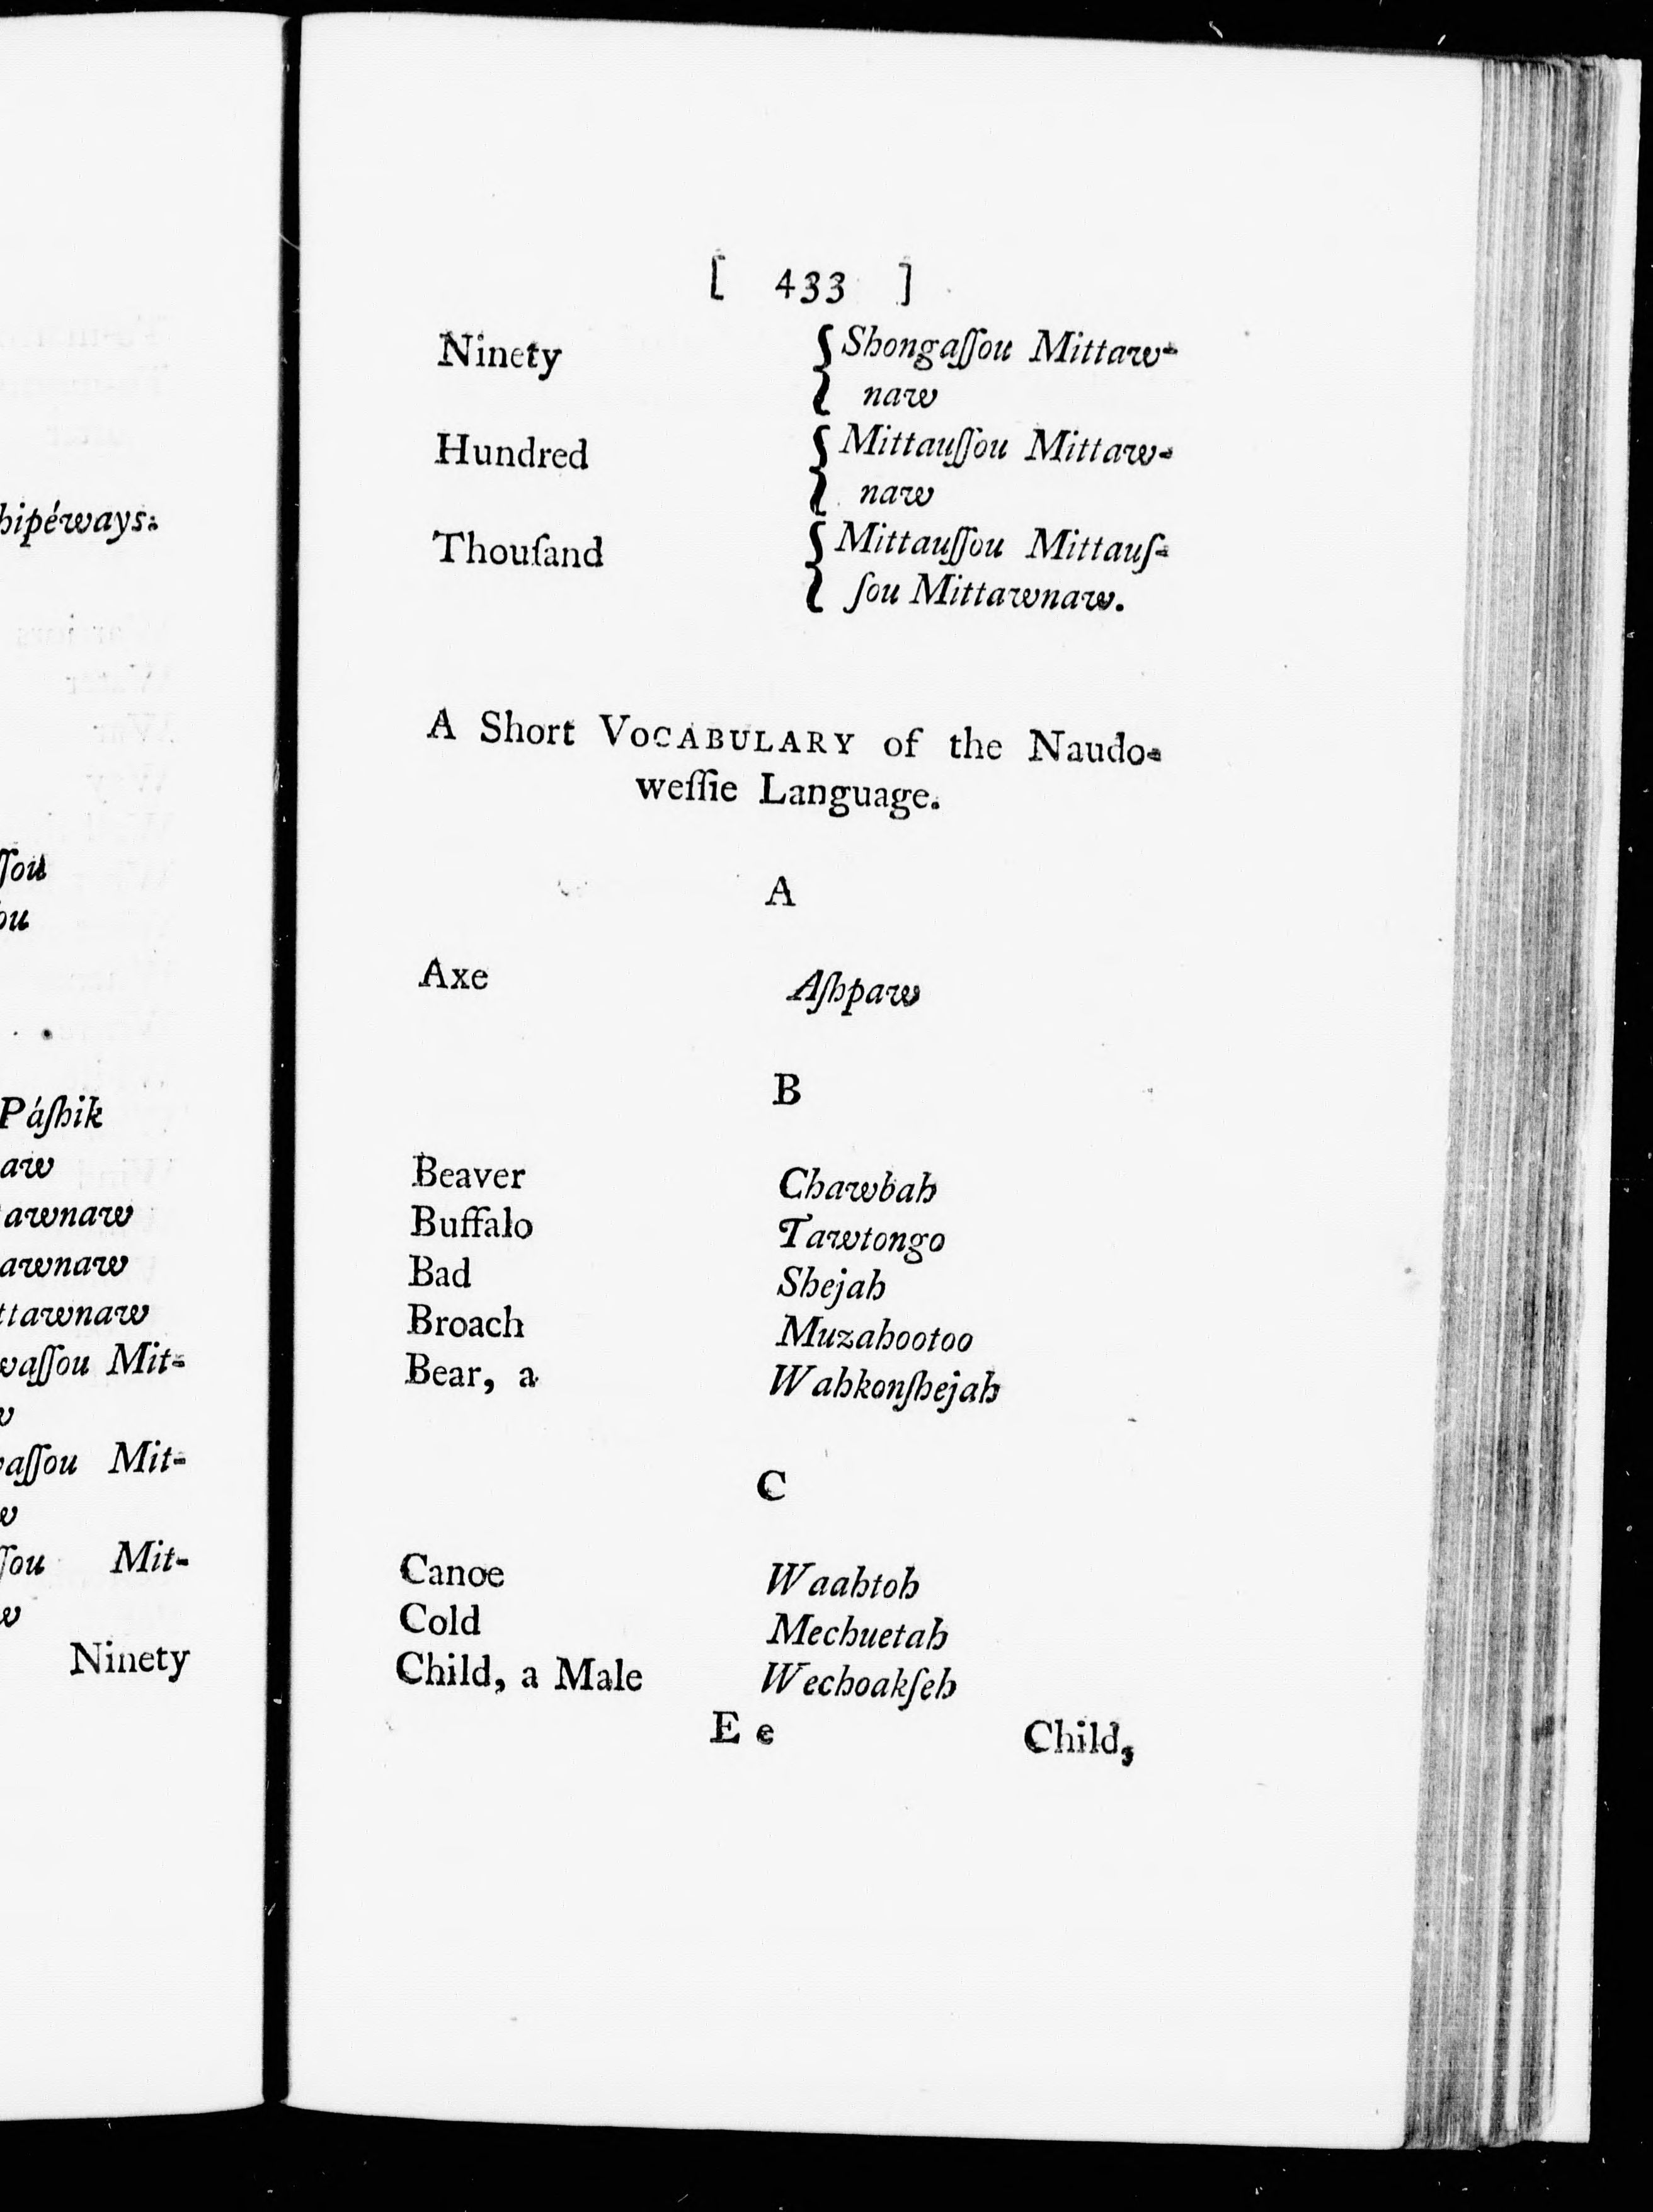 hipéways.
ſſou
ou
Páſhik
aw
awnaw
awnaw
ttawnaw
waſſou Mit-
w
vaſſou Mit-
w
ſſou Mit-
w
Ninety
[ 433 ]
Ninety { Shongaſſou Mittaw-
naw
Hundred { Mittauſſou Mittaw-
naw
Thouſand { Mittauſſou Mittauſ-
ſou Mittawnaw.
A Short VOCABULARY of the Naudo-
weſſie Language.
A
Axe Aſhpaw
B
Beaver Chawbah
Buffalo Tawtongo
Bad Shejah
Broach Muzahootoo
Bear, a Wahkonſhejah
C
Canoe Waahtoh
Cold Mechuetah
Child, a Male Wechoakſeh
E e Child,